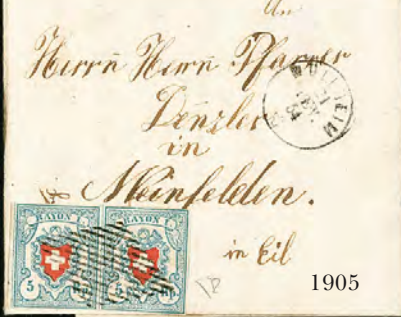 An
Herrn Herrn Pfarrer
Denzler
in
Weinfelden.
in Eil
RAYON RAYON
5 5 Rp.
1905